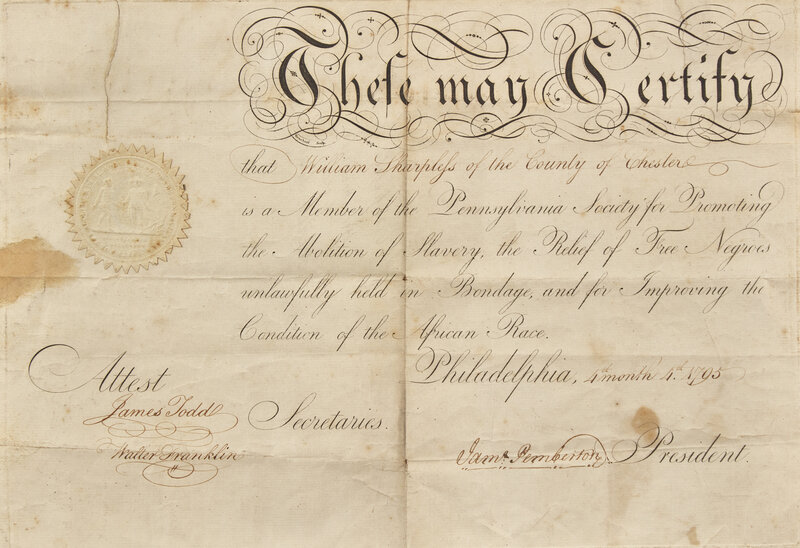 Theſe may Certify
that William Sharpleſs of the County of Chester
is a Member of the Pennsylvania Society for Promoting
the Abolition of Slavery, the Relief of Free Negroes
unlawfully held in Bondage, and for Improving the
Condition of the African Race.
Philadelphia, 4th month 4th 1795
Attest
James Todd
Secretaries.
Walter Franklin
Jams. Pemberton President.